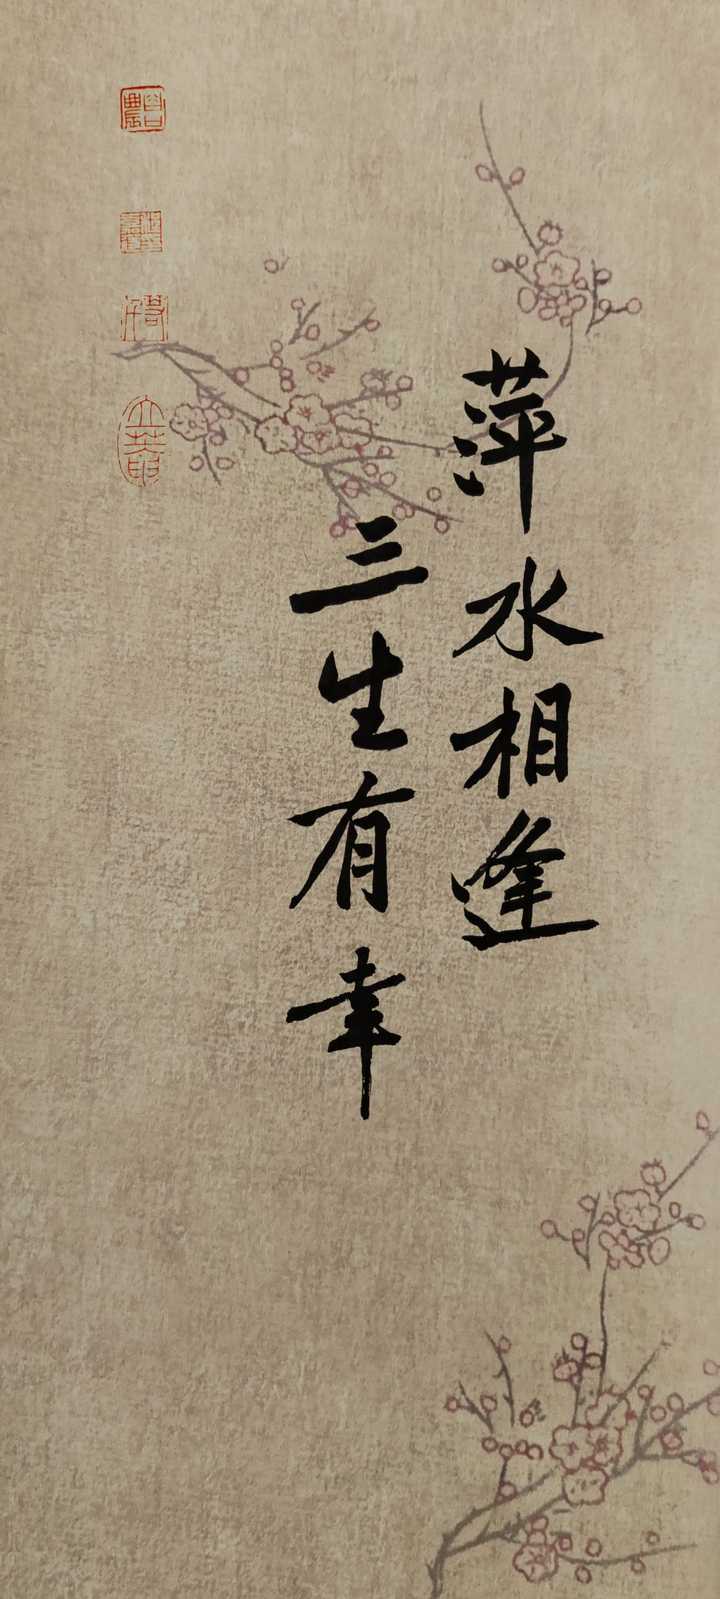 萍水相逢
三生有幸